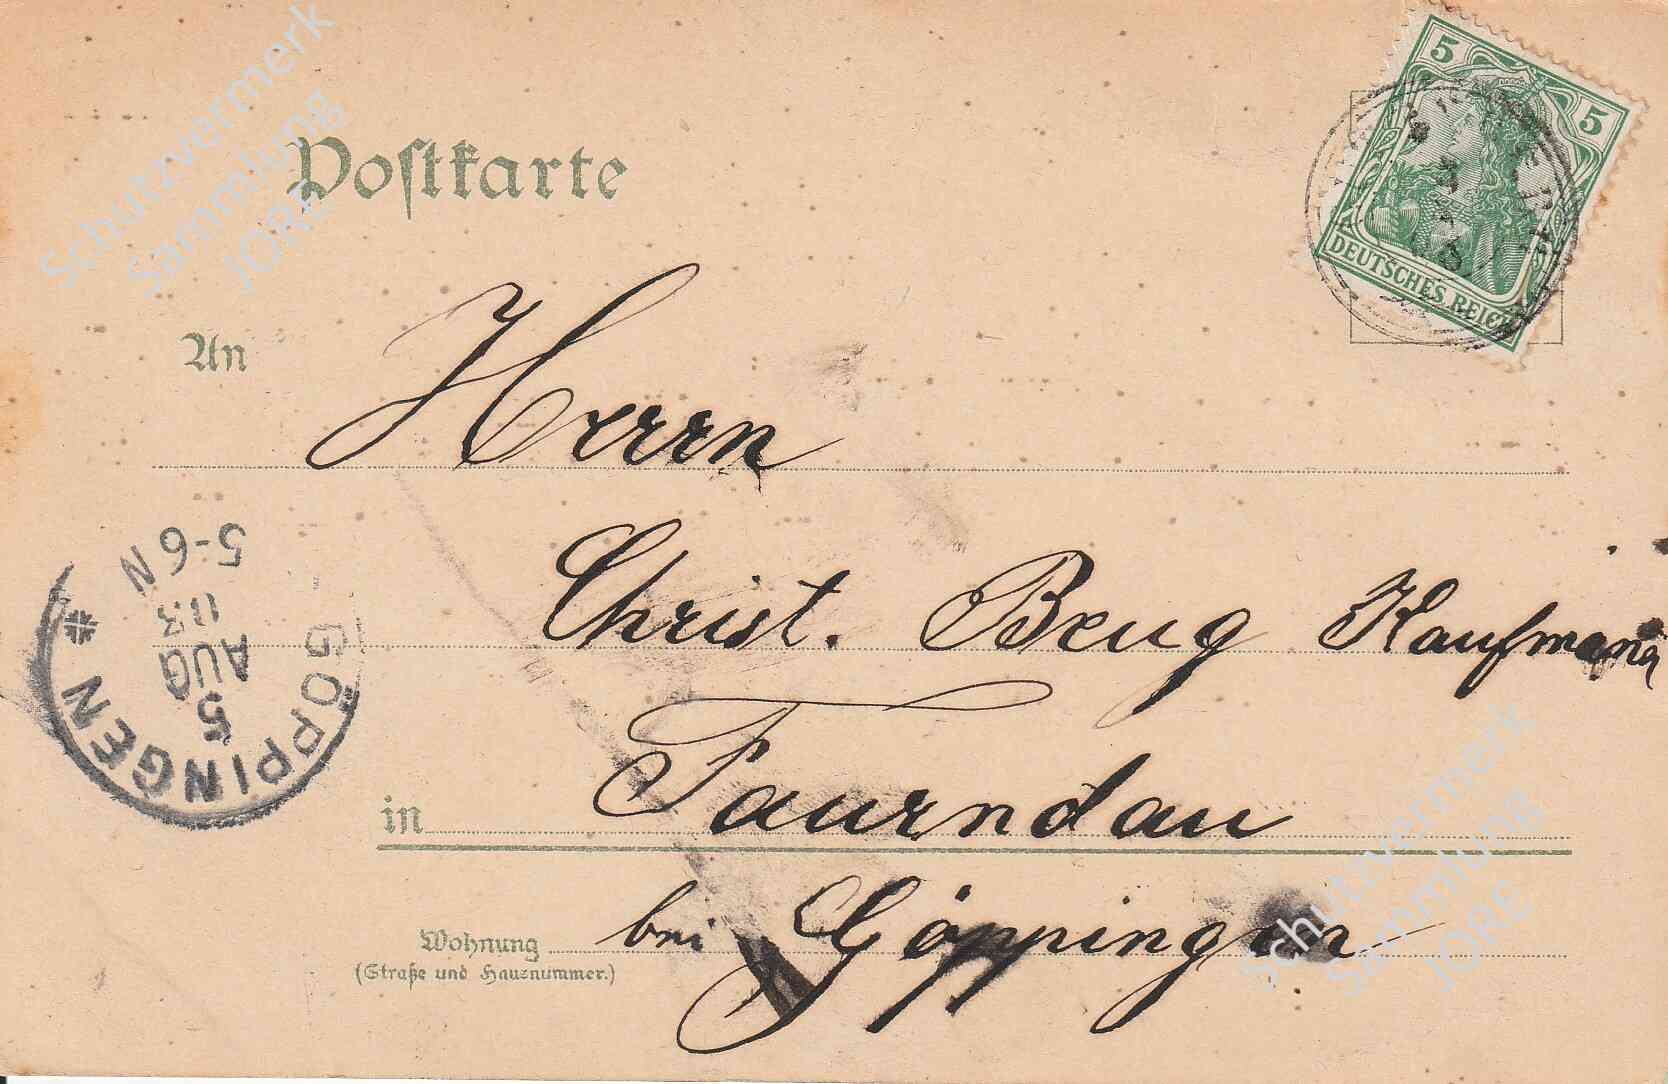 Postkarte
5 5
DEUTSCHES REICH
An
Herrn
Christ. Beug Kaufmann
in Faurndau
Wohnung bei Göppingen
(Straße und Hausnummer.)
GÖPPINGEN
5
AUG
03
5-6 N
Schutzvermerk
Sammlung
JORE
Schutzvermerk
Sammlung
JORE